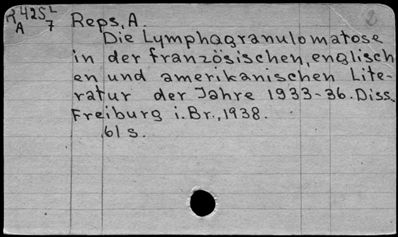 R425L Reps, A.
A 7
Die Lymphogranulomatose
in der französischen, englisch
en und amerikanischen Lite-
ratur der Jahre 1933-36. Diss.
Freiburg i. Br., 1938.
61 s.
2